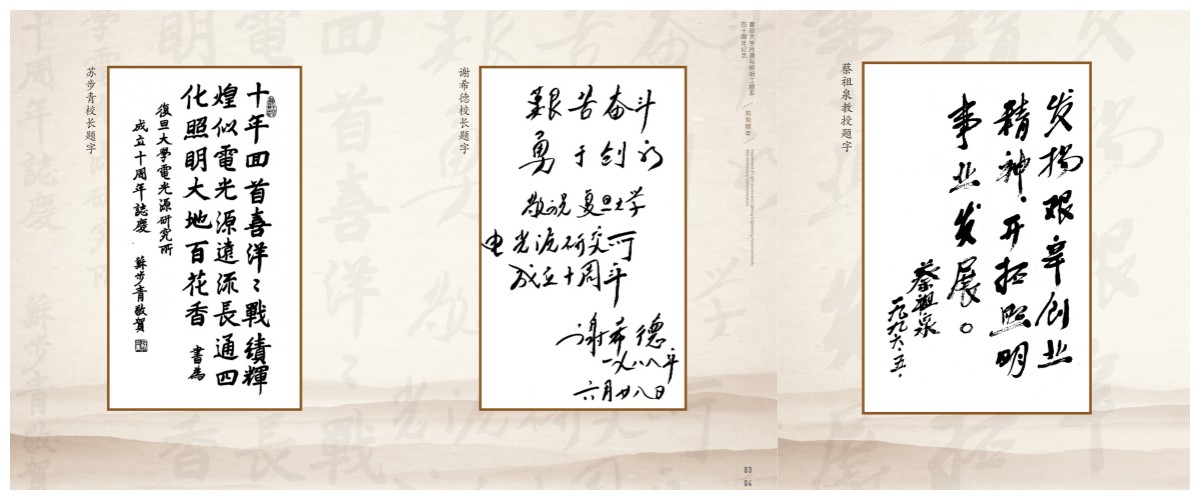 苏步青校长题字
十年回首喜洋洋戰績輝
煌似電光源遠流長通四
化照明大地百花香 書爲
復旦大學電光源研究所
成立十周年誌慶 蘇步青敬賀
谢希德校长题字
艰苦奋斗
勇于创新
敬祝复旦大学
电光源研究所
成立十周年
谢希德
一九八八年
六月廿八日
复旦大学光源与照明工程系
四十周年纪念
03
04
蔡祖泉教授题字
发扬艰辛创业
精神,开拓照明
事业发展。
蔡祖泉
一九九六.五.